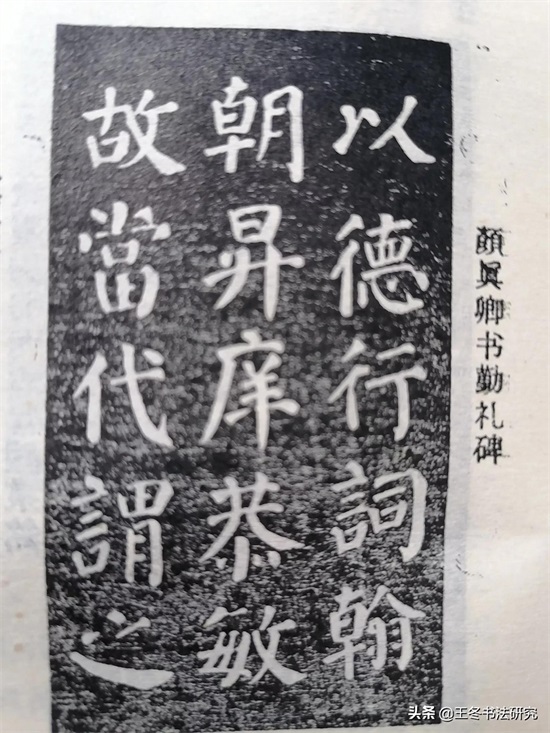 以德行詞翰
朝昇庠恭敏
故當代謂之
顏眞卿书勤礼碑
头条 @王冬书法研究